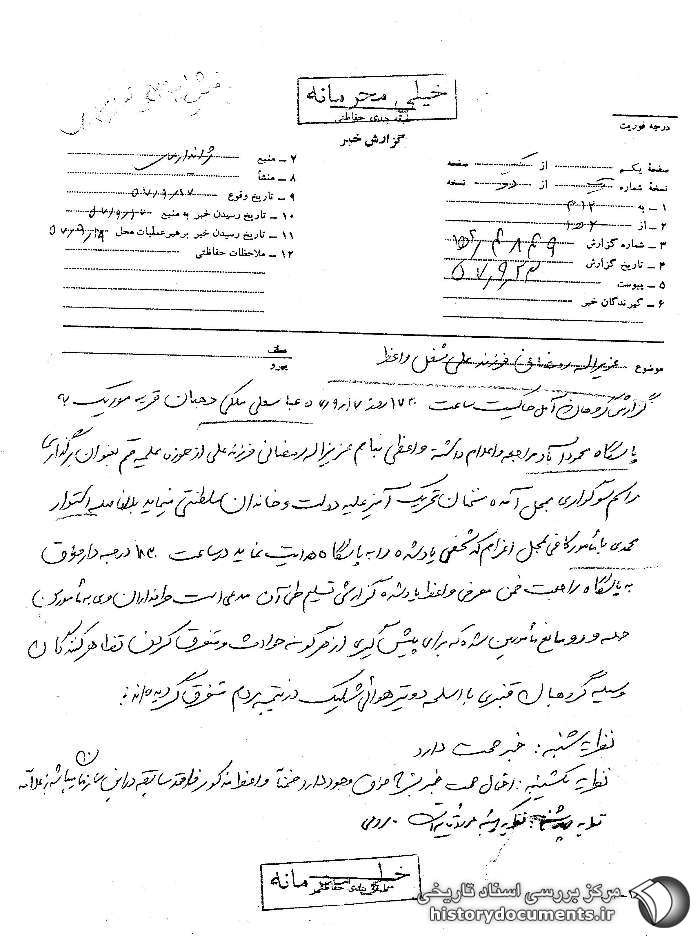 خیلی محرمانه
طبقه بندی حفاظتی
گزارش خبر
درجه فوریت
صفحه یکم از یک صفحه
نسخه شماره یک از دو نسخه
۱ - به ۳۱۲
۲ - از
۳ - شماره گزارش
۴ - تاریخ گزارش ۵۷,۹,۲۳
۵ - پیوست
۶ - گیرندگان خبر
۷ - منبع ژاندارمری
۸ - منشأ
۹ - تاریخ وقوع ۵۷/۹/۱۷
۱۰ - تاریخ رسیدن خبر به منبع ۵۷/۹/۱۷
۱۱ - تاریخ رسیدن خبر برهبر عملیات محل ۵۷/۹/۱۹
۱۲ - ملاحظات حفاظتی
موضوع عزیزاله رمضانی فرزند علی شغل واعظ
سلف
پیرو
گزارش گروهان آمل حاکیست ساعت ۱۷۳۰ روز ۵۷/۹/۱۷ عباسعلی ملکی دهبان قریه موزیک به
پاسگاه محمودآباد مراجعه و اعلام داشته واعظی بنام عزیزاله رمضانی فرزند علی از حوزه علمیه قم بعنوان برگذاری
مراسم سوگواری بمحل آمده سخنان تحریک آمیز علیه دولت و خاندان سلطنتی مینماید بلافاصله استوار
محمدی با مأمور کافی بمحل اعزام که شخص یادشده را به پاسگاه هدایت نماید در ساعت ۱۸۳۰ درجه دار فوق
به پاسگاه مراجعت ضمن معرفی واعظ یادشده گزارشی تسلیم طی آن مدعی است طرفداران وی به مأمورین
حمله و مانع مأمورین شده که برای پیش گیری از هرگونه حوادث و متفرق کردن تظاهرکنندگان
وسیله گروهبان قنبری با اسلحه دو تیر هوائی شلیک در نتیجه مردم متفرق گردیده‌اند.
نظریه شنبه : خبر صحت دارد
نظریه یکشنبه : احتمال صحت خبر بشرح فوق وجود دارد ضمناً واعظ مذکور فاقد سابقه در این سازمان میباشد.
خیلی محرمانه
مرکز بررسی اسناد تاریخی
historydocuments.ir